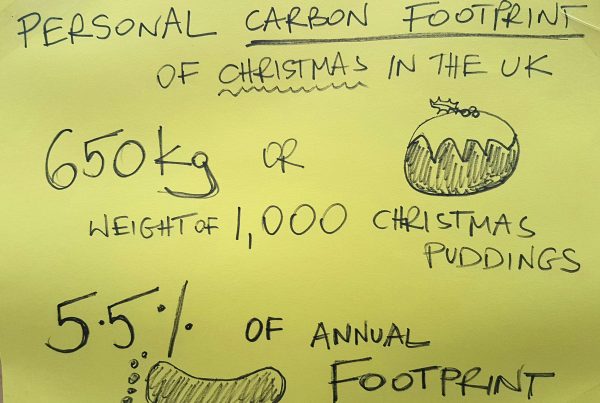 PERSONAL CARBON FOOTPRINT
OF CHRISTMAS IN THE UK
650kg OR
WEIGHT OF 1,000 CHRISTMAS
PUDDINGS
5.5% OF ANNUAL
FOOTPRINT